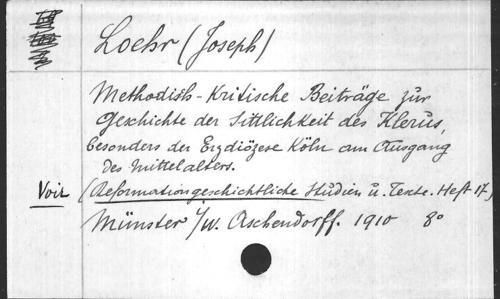 Loehr (Joseph)
Methodish-Kritische Beiträge zur
Geschichte der Sittlichkeit des Klerus,
besonders der Erzdiözese Köln am Ausgang
des Mittelalters.
Voir (Reformationsgeschichtliche Studien u. Texte. Heft 17)
Münster i/W. Aschendorff. 1910 8°